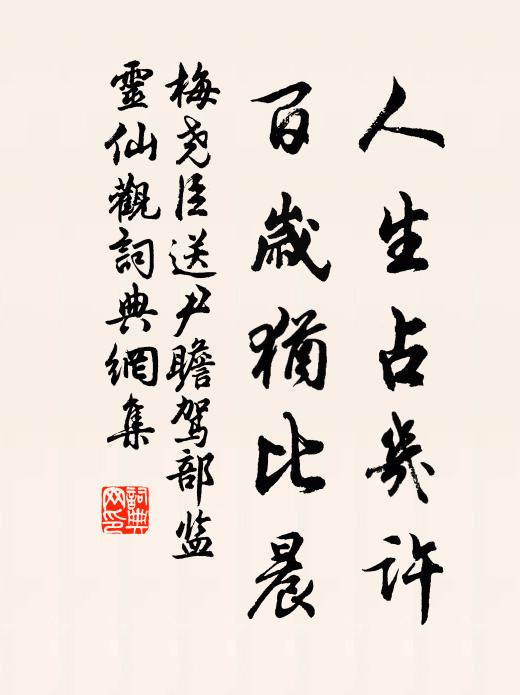 人生占幾許
百歲猶比晨
梅尧臣送尹瞻驾部监
靈仙觀詞典網集
詞典
网印